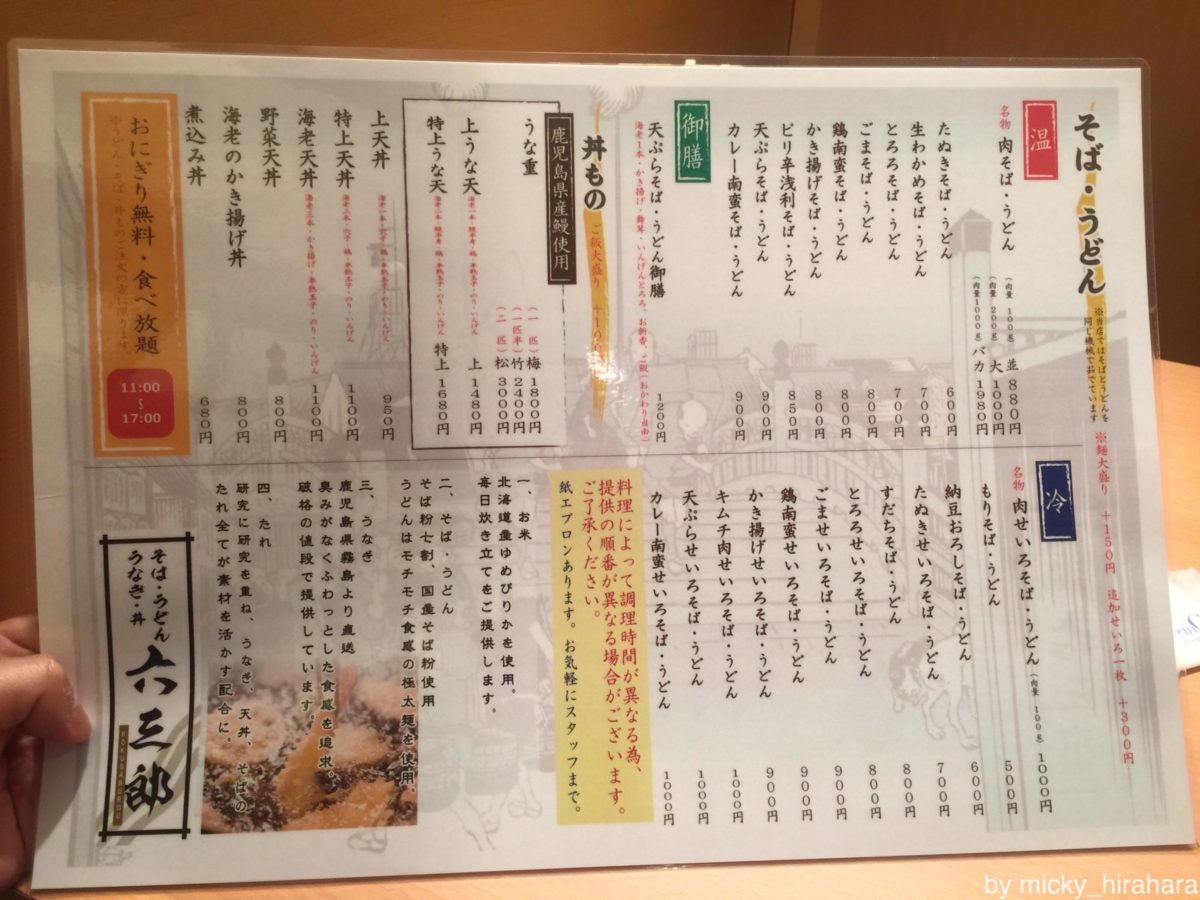 そば・うどん
※当店ではそばとうどんを
同じ機械で茹でています
※麺大盛り ＋150円 追加せいろ一枚 ＋300円
温
名物 肉そば・うどん
(肉量 100g) 並 880円
(肉量 200g) 大 1000円
(肉量1000g) バカ 1980円
たぬきそば・うどん 600円
生わかめそば・うどん 700円
とろろそば・うどん 700円
ごまそば・うどん 800円
鶏南蛮そば・うどん 800円
かき揚げそば・うどん 800円
ピリ辛浅利そば・うどん 850円
天ぷらそば・うどん 900円
カレー南蛮そば・うどん 900円
御膳
天ぷらそば・うどん御膳 1200円
海老1本・かき揚げ・舞茸・いんげんとろろ、お新香、ご飯(おかわり自由)
丼もの
ご飯大盛り
鹿児島県産鰻使用
うな重
(一匹) 梅 1800円
(一匹半) 竹 2400円
(二匹) 松 3000円
上うな天 上 1480円
特上うな天 特上 1680円
上天丼 950円
特上天丼 1100円
海老天丼 海老三本・かき揚げ・半熟玉子・のり・いんげん 1100円
野菜天丼 800円
海老のかき揚げ丼 800円
煮込み丼 680円
おにぎり無料・食べ放題
※うどん・そば・丼ものご注文の方に限ります。
11:00
～
17:00
冷
名物 肉せいろそば・うどん (肉量 100g) 1000円
もりそば・うどん 500円
納豆おろしそば・うどん 600円
たぬきせいろそば・うどん 700円
すだちそば・うどん 800円
とろろせいろそば・うどん 800円
ごませいろそば・うどん 900円
鶏南蛮せいろそば・うどん 900円
かき揚げせいろそば・うどん 900円
キムチ肉せいろそば・うどん 1000円
天ぷらせいろそば・うどん 1000円
カレー南蛮せいろそば・うどん 1000円
料理によって調理時間が異なる為、
提供の順番が異なる場合がございます。
ご了承ください。
紙エプロンあります。お気軽にスタッフまで。
一、お米
北海道産ゆめぴりかを使用。
毎日炊き立てをご提供します。
二、そば・うどん
そば粉七割、国産そば粉使用
うどんはモチモチ食感の極太麺を使用。
三、うなぎ
鹿児島県霧島より直送
臭みがなくふわっとした食感を追求。
破格の値段で提供しています。
四、たれ
研究に研究を重ね、うなぎ、天丼、そばの
たれ全てが素材を活かす配合に。
そば・うどん
うなぎ・丼
六三郎
ROKUSABUROU
by micky_hirahara